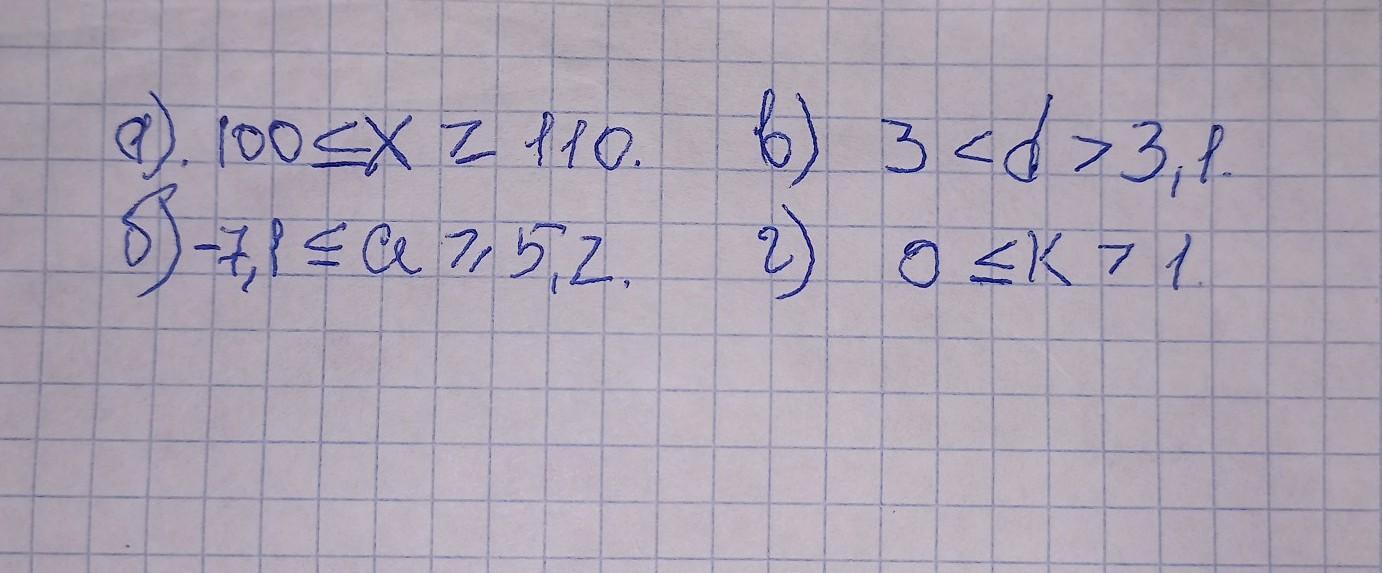 а). 100 ≤ x ≥ 110. в) 3 < d > 3,1.
б) -7,1 ≤ a ≥ 5,2. г) 0 ≤ K > 1.